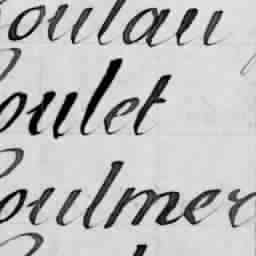 oulau
oulet
oulmer